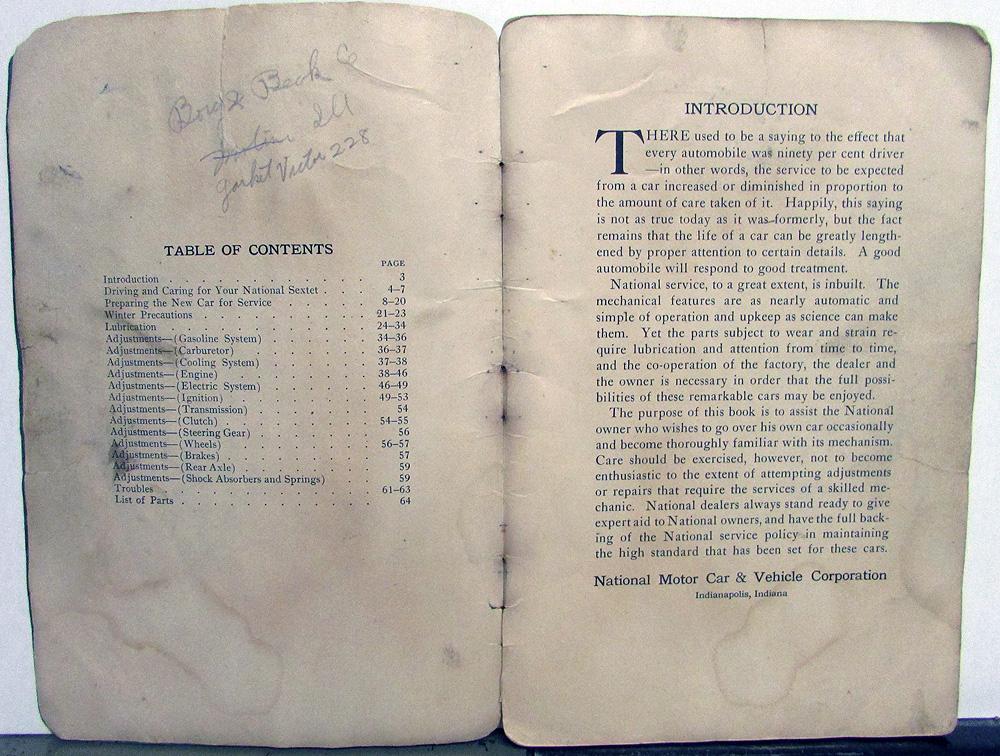 Borg & Beck Co
Ill
gasket Victor 228
TABLE OF CONTENTS
PAGE
Introduction . . . . . . . . . . 3
Driving and Caring for Your National Sextet . . . . 4–7
Preparing the New Car for Service . . . . . . 8–20
Winter Precautions . . . . . . . . . 21–23
Lubrication . . . . . . . . . . 24–34
Adjustments—(Gasoline System) . . . . . . 34–36
Adjustments—(Carburetor) . . . . . . . 36–37
Adjustments—(Cooling System) . . . . . . 37–38
Adjustments—(Engine) . . . . . . . . 38–46
Adjustments—(Electric System) . . . . . . 46–49
Adjustments—(Ignition) . . . . . . . 49–53
Adjustments—(Transmission) . . . . . . 54
Adjustments—(Clutch) . . . . . . . . 54–55
Adjustments—(Steering Gear) . . . . . . 56
Adjustments—(Wheels) . . . . . . . . 56–57
Adjustments—(Brakes) . . . . . . . . 57
Adjustments—(Rear Axle) . . . . . . . 59
Adjustments—(Shock Absorbers and Springs) . . . 59
Troubles . . . . . . . . . . . 61–63
List of Parts . . . . . . . . . . 64
INTRODUCTION
THERE used to be a saying to the effect that
every automobile was ninety per cent driver
—in other words, the service to be expected
from a car increased or diminished in proportion to
the amount of care taken of it. Happily, this saying
is not as true today as it was formerly, but the fact
remains that the life of a car can be greatly length-
ened by proper attention to certain details. A good
automobile will respond to good treatment.
National service, to a great extent, is inbuilt. The
mechanical features are as nearly automatic and
simple of operation and upkeep as science can make
them. Yet the parts subject to wear and strain re-
quire lubrication and attention from time to time,
and the co-operation of the factory, the dealer and
the owner is necessary in order that the full possi-
bilities of these remarkable cars may be enjoyed.
The purpose of this book is to assist the National
owner who wishes to go over his own car occasionally
and become thoroughly familiar with its mechanism.
Care should be exercised, however, not to become
enthusiastic to the extent of attempting adjustments
or repairs that require the services of a skilled me-
chanic. National dealers always stand ready to give
expert aid to National owners, and have the full back-
ing of the National service policy in maintaining
the high standard that has been set for these cars.
National Motor Car & Vehicle Corporation
Indianapolis, Indiana